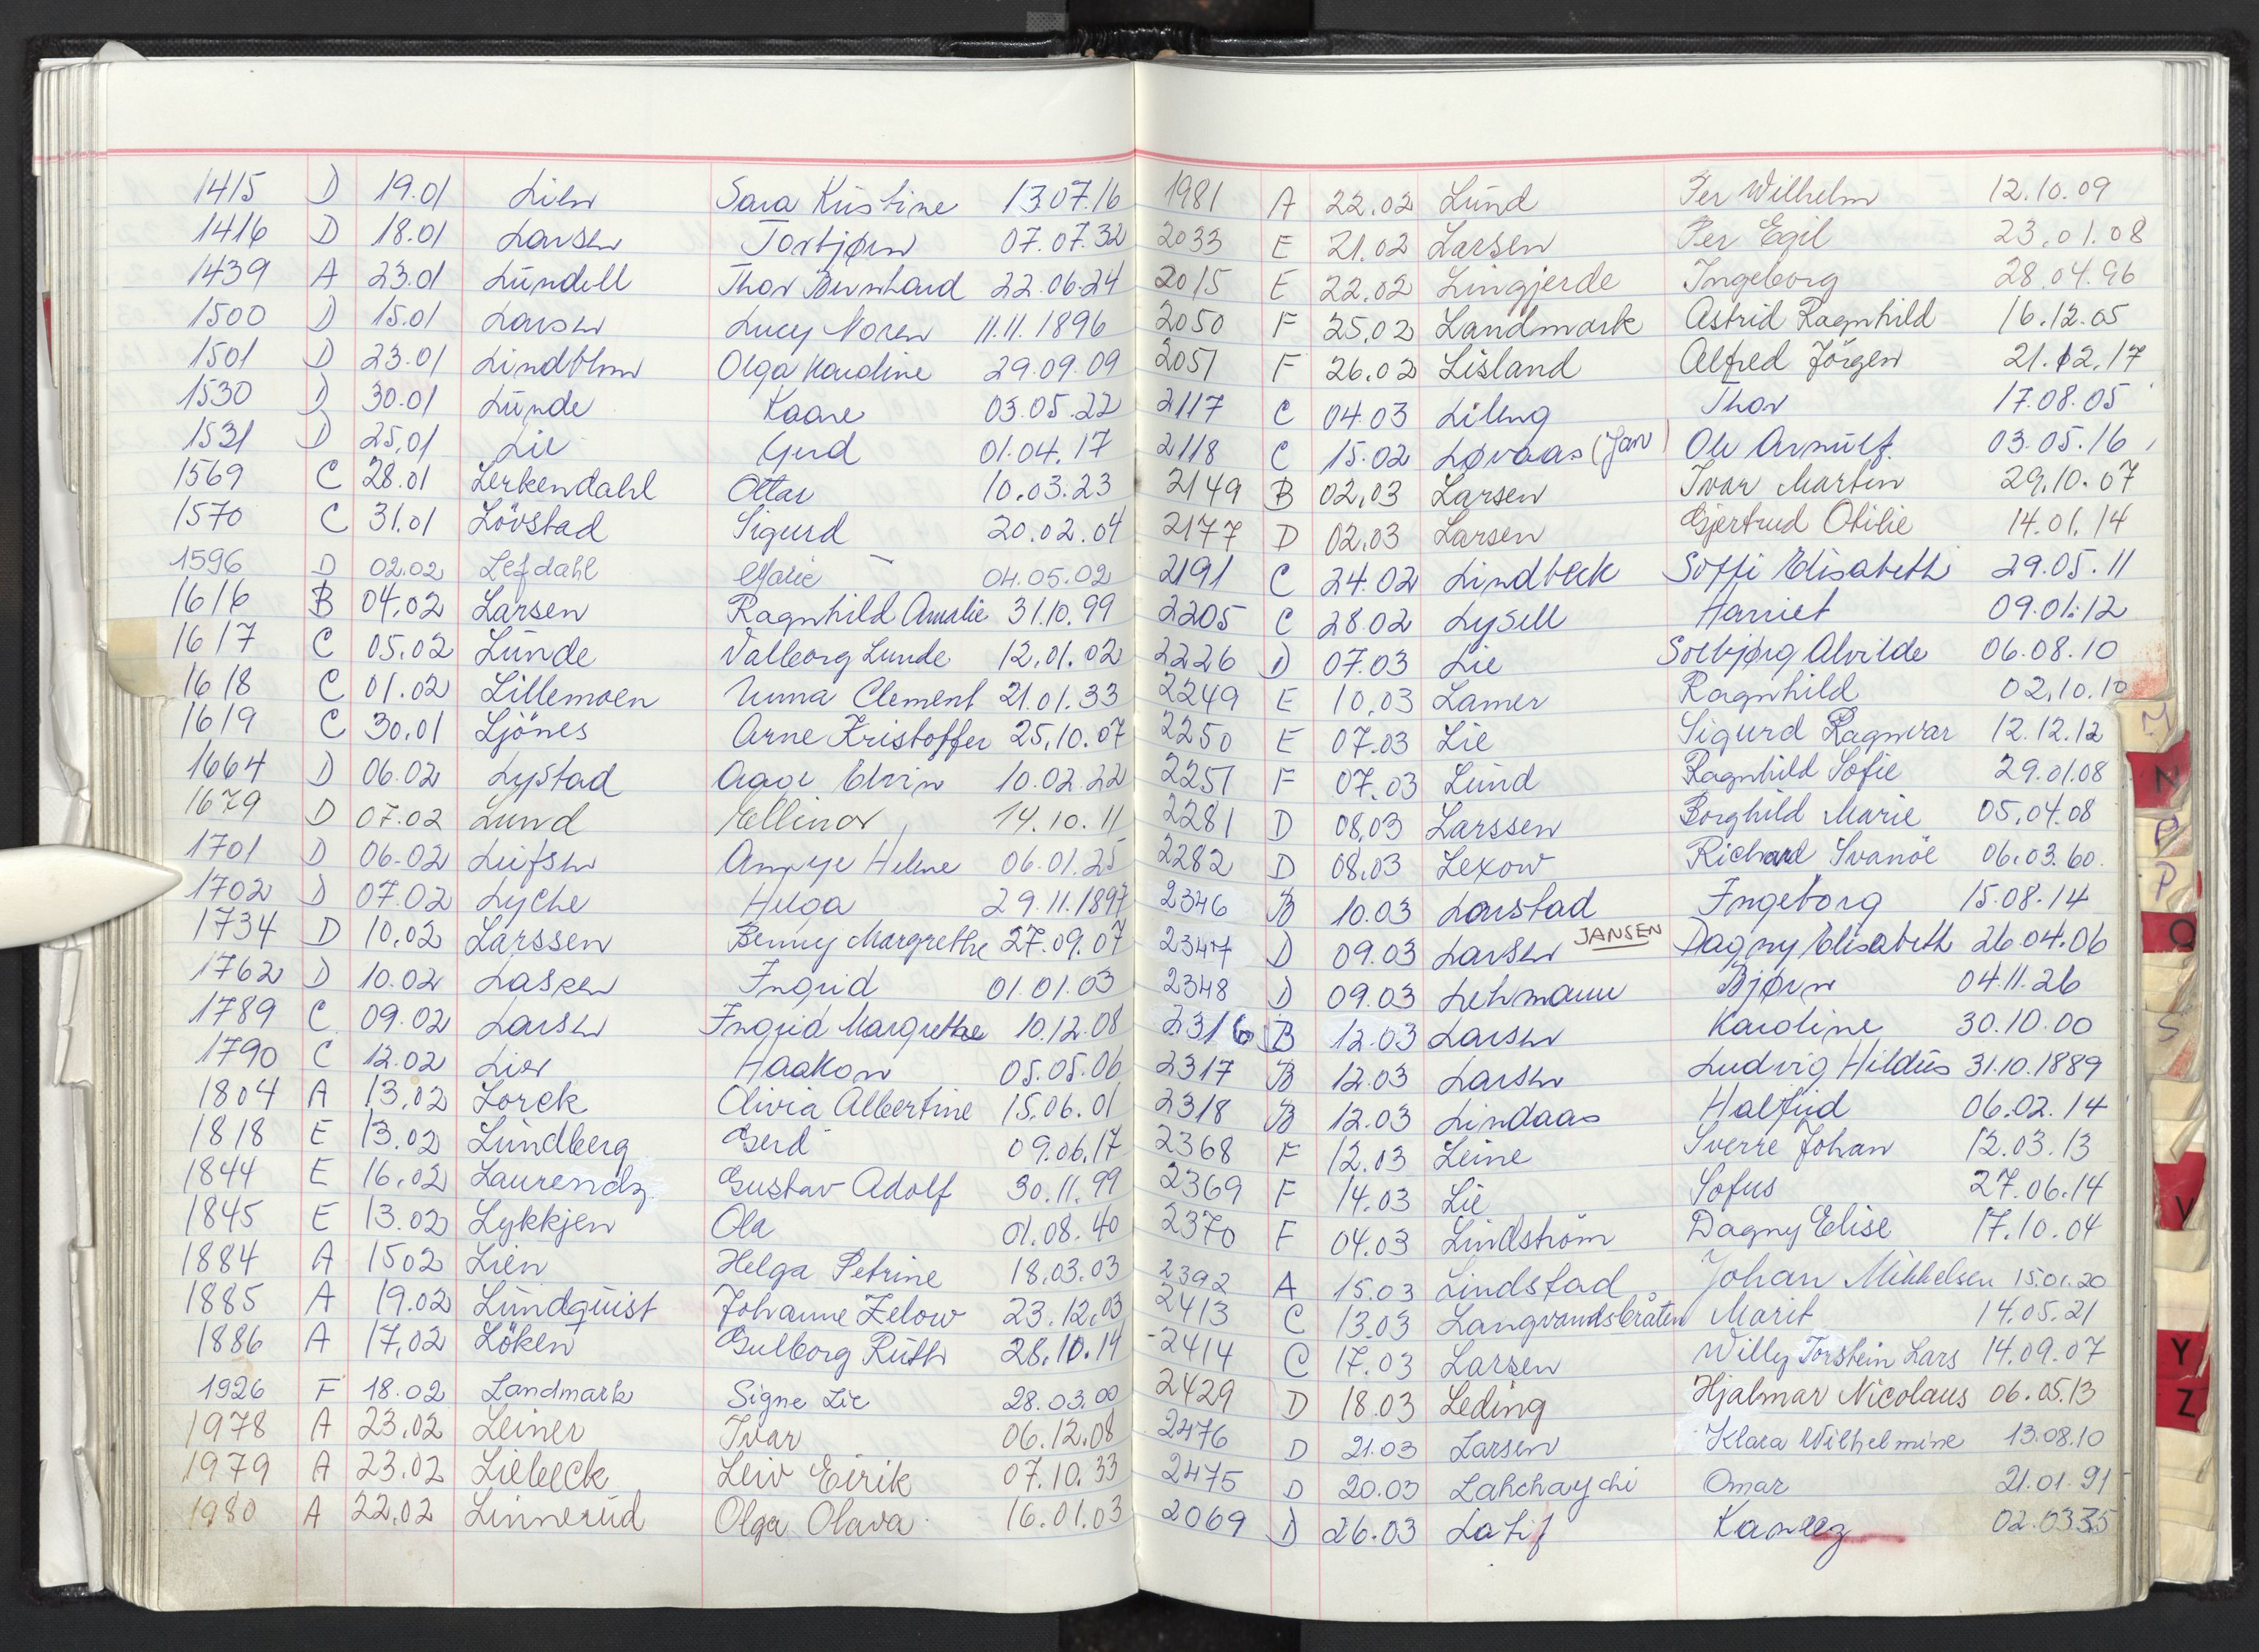 1415 D 19.01 Lien Sara Kristine 13.07.16
1416 D 18.01 Larsen Torbjørn 07.07.32
1439 A 23.01 Lundell Thor Bernhard 22.06.24
1500 D 15.01 Larsen Lucy Noren 11.11.1896
1501 D 23.01 Lindblom Olga Karoline 29.09.09
1530 D 30.01 Lunde Kaare 03.05.22
1531 D 25.01 Lie Gerd 01.04.17
1569 C 28.01 Lerkendahl Ottar 10.03.23
1570 C 31.01 Lövstad Sigurd 20.02.04
1596 D 02.02 Lefdahl Marie 04.05.02
1616 B 04.02 Larsen Ragnhild Amalie 31.10.99
1617 C 05.02 Lunde Valborg Lunde 12.01.02
1618 C 01.02 Lillemoen Unna Clement 21.01.33
1619 C 30.01 Ljönes Arne Kristoffer 25.10.07
1664 D 06.02 Lystad Aage Elvin 10.02.22
1679 D 07.02 Lund Ellinor 14.10.11
1701 D 06.02 Leifsen Helene 06.01.25
1702 D 07.02 Lyche Helga 29.11.1897
1734 D 10.02 Larssen Benny Margrethe 27.09.07
1762 D 10.02 Lasken Ingrid 01.01.03
1789 C 09.02 Larsen Ingrid Margrethe 10.12.08
1790 C 12.02 Lier Haakon 05.05.06
1804 A 13.02 Lorck Olivia Albertine 15.06.01
1818 E 13.02 Lundberg Gerd 09.06.17
1844 E 16.02 Laurendz Gustav Adolf 30.11.99
1845 E 13.02 Lykkjen Ola 01.08.40
1884 A 1502 Lien Helga Petrine 18.03.03
1885 A 19.02 Lundquist Johanne Zelow 23.12.03
1886 A 17.02 Löken Gulborg Ruth 28.10.14
1926 F 18.02 Landmark Signe Lie 28.03.00
1978 A 23.02 Leiner Ivar 06.12.08
1979 A 23.02 Liebeck Leiv Eirik 07.10.33
1980 A 22.02 Linnerud Olga Olava 16.01.03
1981 A 22.02 Lund Per Wilhelm 12.10.09
2033 E 21.02 Larsen Per Egil 23.01.08
2015 E 22.02 Lingjerde Ingeborg 28.04.96
2050 F 25.02 Landmark Astrid Ragnhild 16.12.05
2051 F 26.02 Lisland Alfred Jörgen 21.12.17
2117 C 04.03 Lileng Thor 17.08.05
2118 C 15.02 Løvaas (Jan) Ole Arnulf 03.05.16
2149 B 02.03 Larsen Ivar Martin 29.10.07
2177 D 02.03 Larsen Gjertrud Otilie 14.01.14
2191 C 24.02 Lindbeck Soffi Elisabeth 29.05.11
2205 C 28.02 Lysell Harriet 09.01.12
2226 D 07.03 Lie Solbjørg Alvilde 06.08.10
2249 E 10.03 Lamer Ragnhild 02.10.10
2250 E 07.03 Lie Sigurd Ragnvar 12.12.12
2251 F 07.03 Lund Ragnhild Sofie 29.01.08
2281 D 08.03 Larssen Borghild Marie 05.04.08
2282 D 08.03 Lexow Richard Svanöe 06.03.60.
2346 B 10.03 Larstad Ingeborg 15.08.14
2347 D 09.03 Larsen JANSEN Dagny Elisabeth 26.04.06
2348 D 09.03 Lehmann Bjørn 04.11.26
2316 B 12.03 Larsen Karoline 30.10.00
2317 B 12.03 Larsen Ludvig Hildus 31.10.1889
2318 B 12.03 Lindaas Halfrid 06.02.14
2368 F 12.03 Leine Sverre Johan 12.03.13
2369 F 14.03 Lie Sofus 27.06.14
2370 F 04.03 Lindström Dagny Elise 17.10.04
2392 A 15.03 Lindstad Johan Mikkelsen 15.01.20
2413 C 13.03 Langvandsbråten Marit 14.05.21
2414 C 17.03 Larsen Willy Torstein Lars 14.09.07
2429 D 18.03 Leding Hjalmar Nicolaus 06.05.13
2476 D 21.03 Larsen Klara Wilhelmine 13.08.10
2475 D 20.03 Lahchaychi Omar 21.01.91
2069 D 26.03 Latif Kaneez 02.0335
N
P
P
Q
S
V
Y
Z